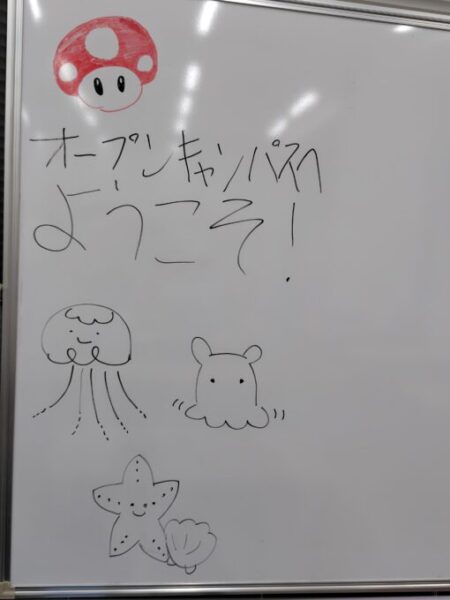 オープンキャンパスへ
ようこそ!